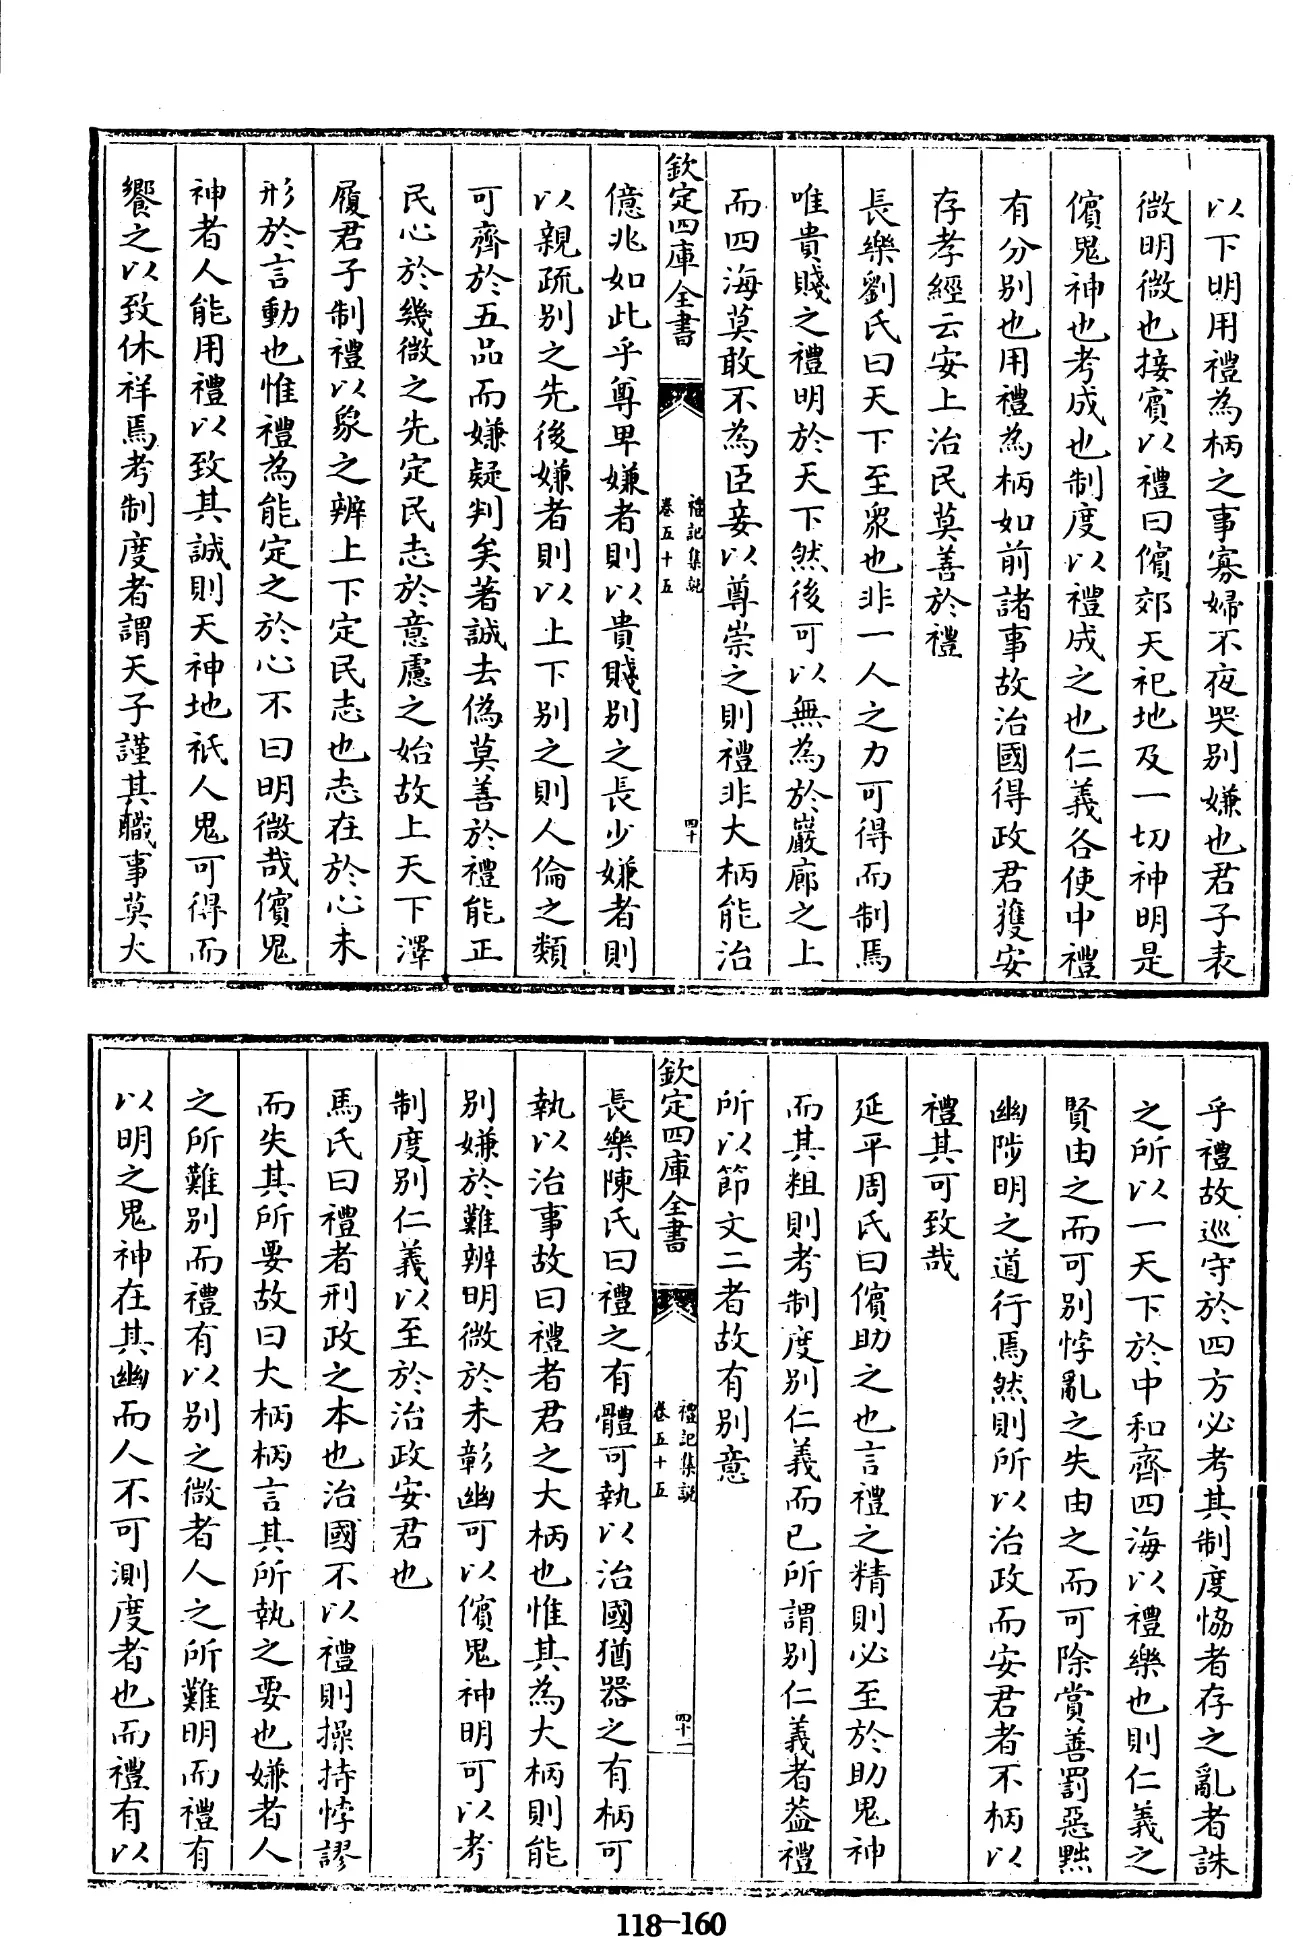 以下明用禮為柄之事寡婦不夜哭别嫌也君子表
微明微也接賓以禮曰儐郊天祀地及一切神明是
儐鬼神也考成也制度以禮成之也仁義各使中禮
有分别也用禮為柄如前諸事故治國得政君獲安
存孝經云安上治民莫善於禮
長樂劉氏曰天下至衆也非一人之力可得而制焉
唯貴賤之禮明於天下然後可以無為於巖廊之上
而四海莫敢不為臣妾以尊崇之則禮非大柄能治
欽定四庫全書
禮記集說
卷五十五
四十
億兆如此乎尊卑嫌者則以貴賤别之長少嫌者則
以親疏别之先後嫌者則以上下别之則人倫之類
可齊於五品而嫌疑判矣著誠去偽莫善於禮能正
民心於幾微之先定民志於意慮之始故上天下澤
履君子制禮以象之辨上下定民志也志在於心未
形於言動也惟禮為能定之於心不曰明微哉儐鬼
神者人能用禮以致其誠則天神地祇人鬼可得而
饗之以致休祥焉考制度者謂天子謹其職事莫大
乎禮故巡守於四方必考其制度恊者存之亂者誅
之所以一天下於中和齊四海以禮樂也則仁義之
賢由之而可别悖亂之失由之而可除賞善罰惡黜
幽陟明之道行焉然則所以治政而安君者不柄以
禮其可致哉
延平周氏曰儐助之也言禮之精則必至於助鬼神
而其粗則考制度别仁義而已所謂别仁義者葢禮
所以節文二者故有别意
欽定四庫全書
禮記集說
卷五十五
四十一
長樂陳氏曰禮之有體可執以治國猶器之有柄可
執以治事故曰禮者君之大柄也惟其為大柄則能
别嫌於難辨明微於未彰幽可以儐鬼神明可以考
制度别仁義以至於治政安君也
馬氏曰禮者刑政之本也治國不以禮則操持悖謬
而失其所要故曰大柄柄言其所執之要也嫌者人
之所難别而禮有以别之微者人之所難明而禮有
以明之鬼神在其幽而人不可測度者也而禮有以
118-160